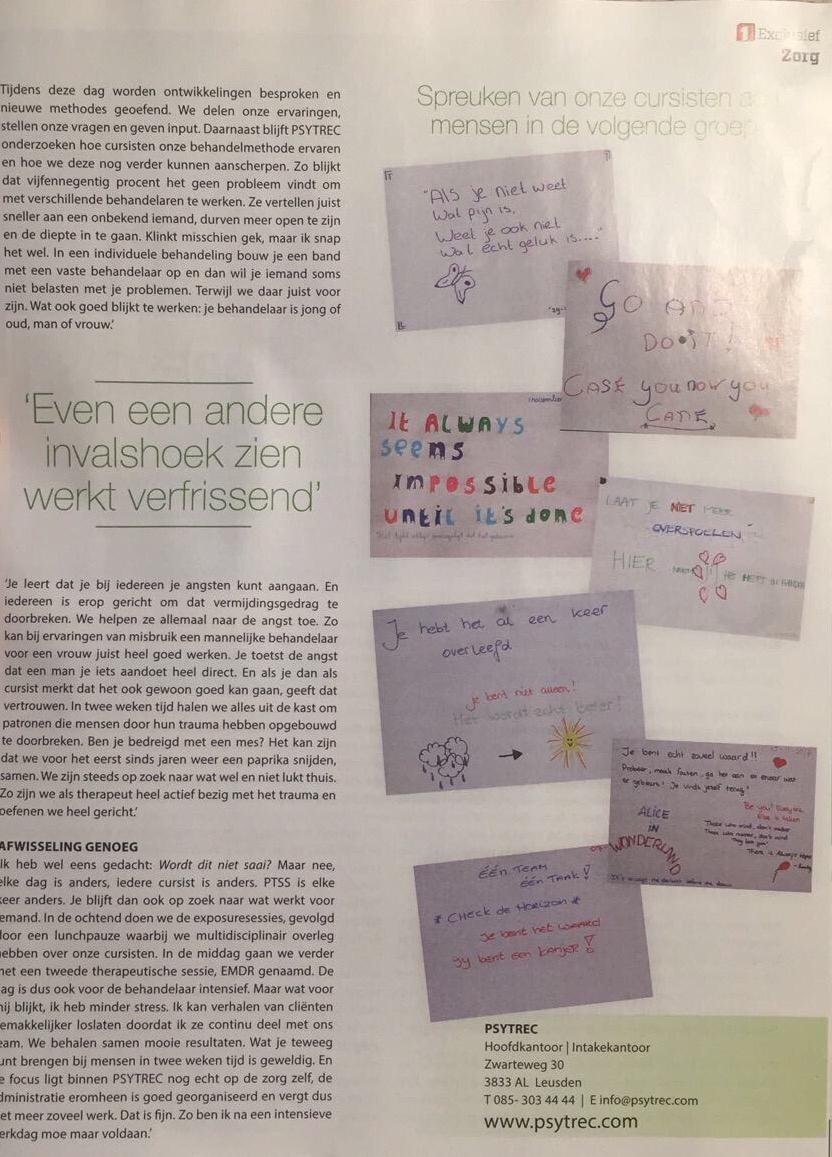 1 Exclusief
Zorg
Tijdens deze dag worden ontwikkelingen besproken en
nieuwe methodes geoefend. We delen onze ervaringen,
stellen onze vragen en geven input. Daarnaast blijft PSYTREC
onderzoeken hoe cursisten onze behandelmethode ervaren
en hoe we deze nog verder kunnen aanscherpen. Zo blijkt
dat vijfennegentig procent het geen probleem vindt om
met verschillende behandelaren te werken. Ze vertellen juist
sneller aan een onbekend iemand, durven meer open te zijn
en de diepte in te gaan. Klinkt misschien gek, maar ik snap
het wel. In een individuele behandeling bouw je een band
met een vaste behandelaar op en dan wil je iemand soms
niet belasten met je problemen. Terwijl we daar juist voor
zijn. Wat ook goed blijkt te werken: je behandelaar is jong of
oud, man of vrouw.’
‘Even een andere
invalshoek zien
werkt verfrissend’
‘Je leert dat je bij iedereen je angsten kunt aangaan. En
iedereen is erop gericht om dat vermijdingsgedrag te
doorbreken. We helpen ze allemaal naar de angst toe. Zo
kan bij ervaringen van misbruik een mannelijke behandelaar
voor een vrouw juist heel goed werken. Je toetst de angst
dat een man je iets aandoet heel direct. En als je dan als
cursist merkt dat het ook gewoon goed kan gaan, geeft dat
vertrouwen. In twee weken tijd halen we alles uit de kast om
patronen die mensen door hun trauma hebben opgebouwd
te doorbreken. Ben je bedreigd met een mes? Het kan zijn
dat we voor het eerst sinds jaren weer een paprika snijden,
samen. We zijn steeds op zoek naar wat wel en niet lukt thuis.
Zo zijn we als therapeut heel actief bezig met het trauma en
oefenen we heel gericht.’
AFWISSELING GENOEG
Ik heb wel eens gedacht: Wordt dit niet saai? Maar nee,
elke dag is anders, iedere cursist is anders. PTSS is elke
keer anders. Je blijft dan ook op zoek naar wat werkt voor
iemand. In de ochtend doen we de exposuresessies, gevolgd
door een lunchpauze waarbij we multidisciplinair overleg
hebben over onze cursisten. In de middag gaan we verder
met een tweede therapeutische sessie, EMDR genaamd. De
dag is dus ook voor de behandelaar intensief. Maar wat voor
mij blijkt, ik heb minder stress. Ik kan verhalen van cliënten
gemakkelijker loslaten doordat ik ze continu deel met ons
team. We behalen samen mooie resultaten. Wat je teweeg
kunt brengen bij mensen in twee weken tijd is geweldig. En
de focus ligt binnen PSYTREC nog echt op de zorg zelf, de
administratie eromheen is goed georganiseerd en vergt dus
niet meer zoveel werk. Dat is fijn. Zo ben ik na een intensieve
werkdag moe maar voldaan.’
Spreuken van onze cursisten
mensen in de volgende groep
"Als je niet weet
wat pijn is,
weet je ook niet
wat echt geluk is...."
GO AND
DO IT!
CASE YOU NOW YOU
CANE
IT ALWAYS
seems
impossible
until it's done
LAAT JE NIET MEER
OVERSPOELEN,
HIER
Je hebt het al een keer
overleefd
je bent niet alleen!
Het wordt echt beter!
Je bent echt zoveel waard!!
Probeer, maak fouten, ga het aan en ervaar wat
er gebeurt! Je vindt jezelf terug!
Be you! Everyone
Else is taken
Those who mind, don't matter
Those who matter, don't mind
There is Always Hope
ALICE
IN
WONDERLAND
ÉÉN TEAM
ÉÉN TAAK!
* CHECK de HORIZON *
je bent het WAARD
jy bent een kanjer!
PSYTREC
Hoofdkantoor | Intakekantoor
Zwarteweg 30
3833 AL Leusden
T 085- 303 44 44 | E info@psytrec.com
www.psytrec.com